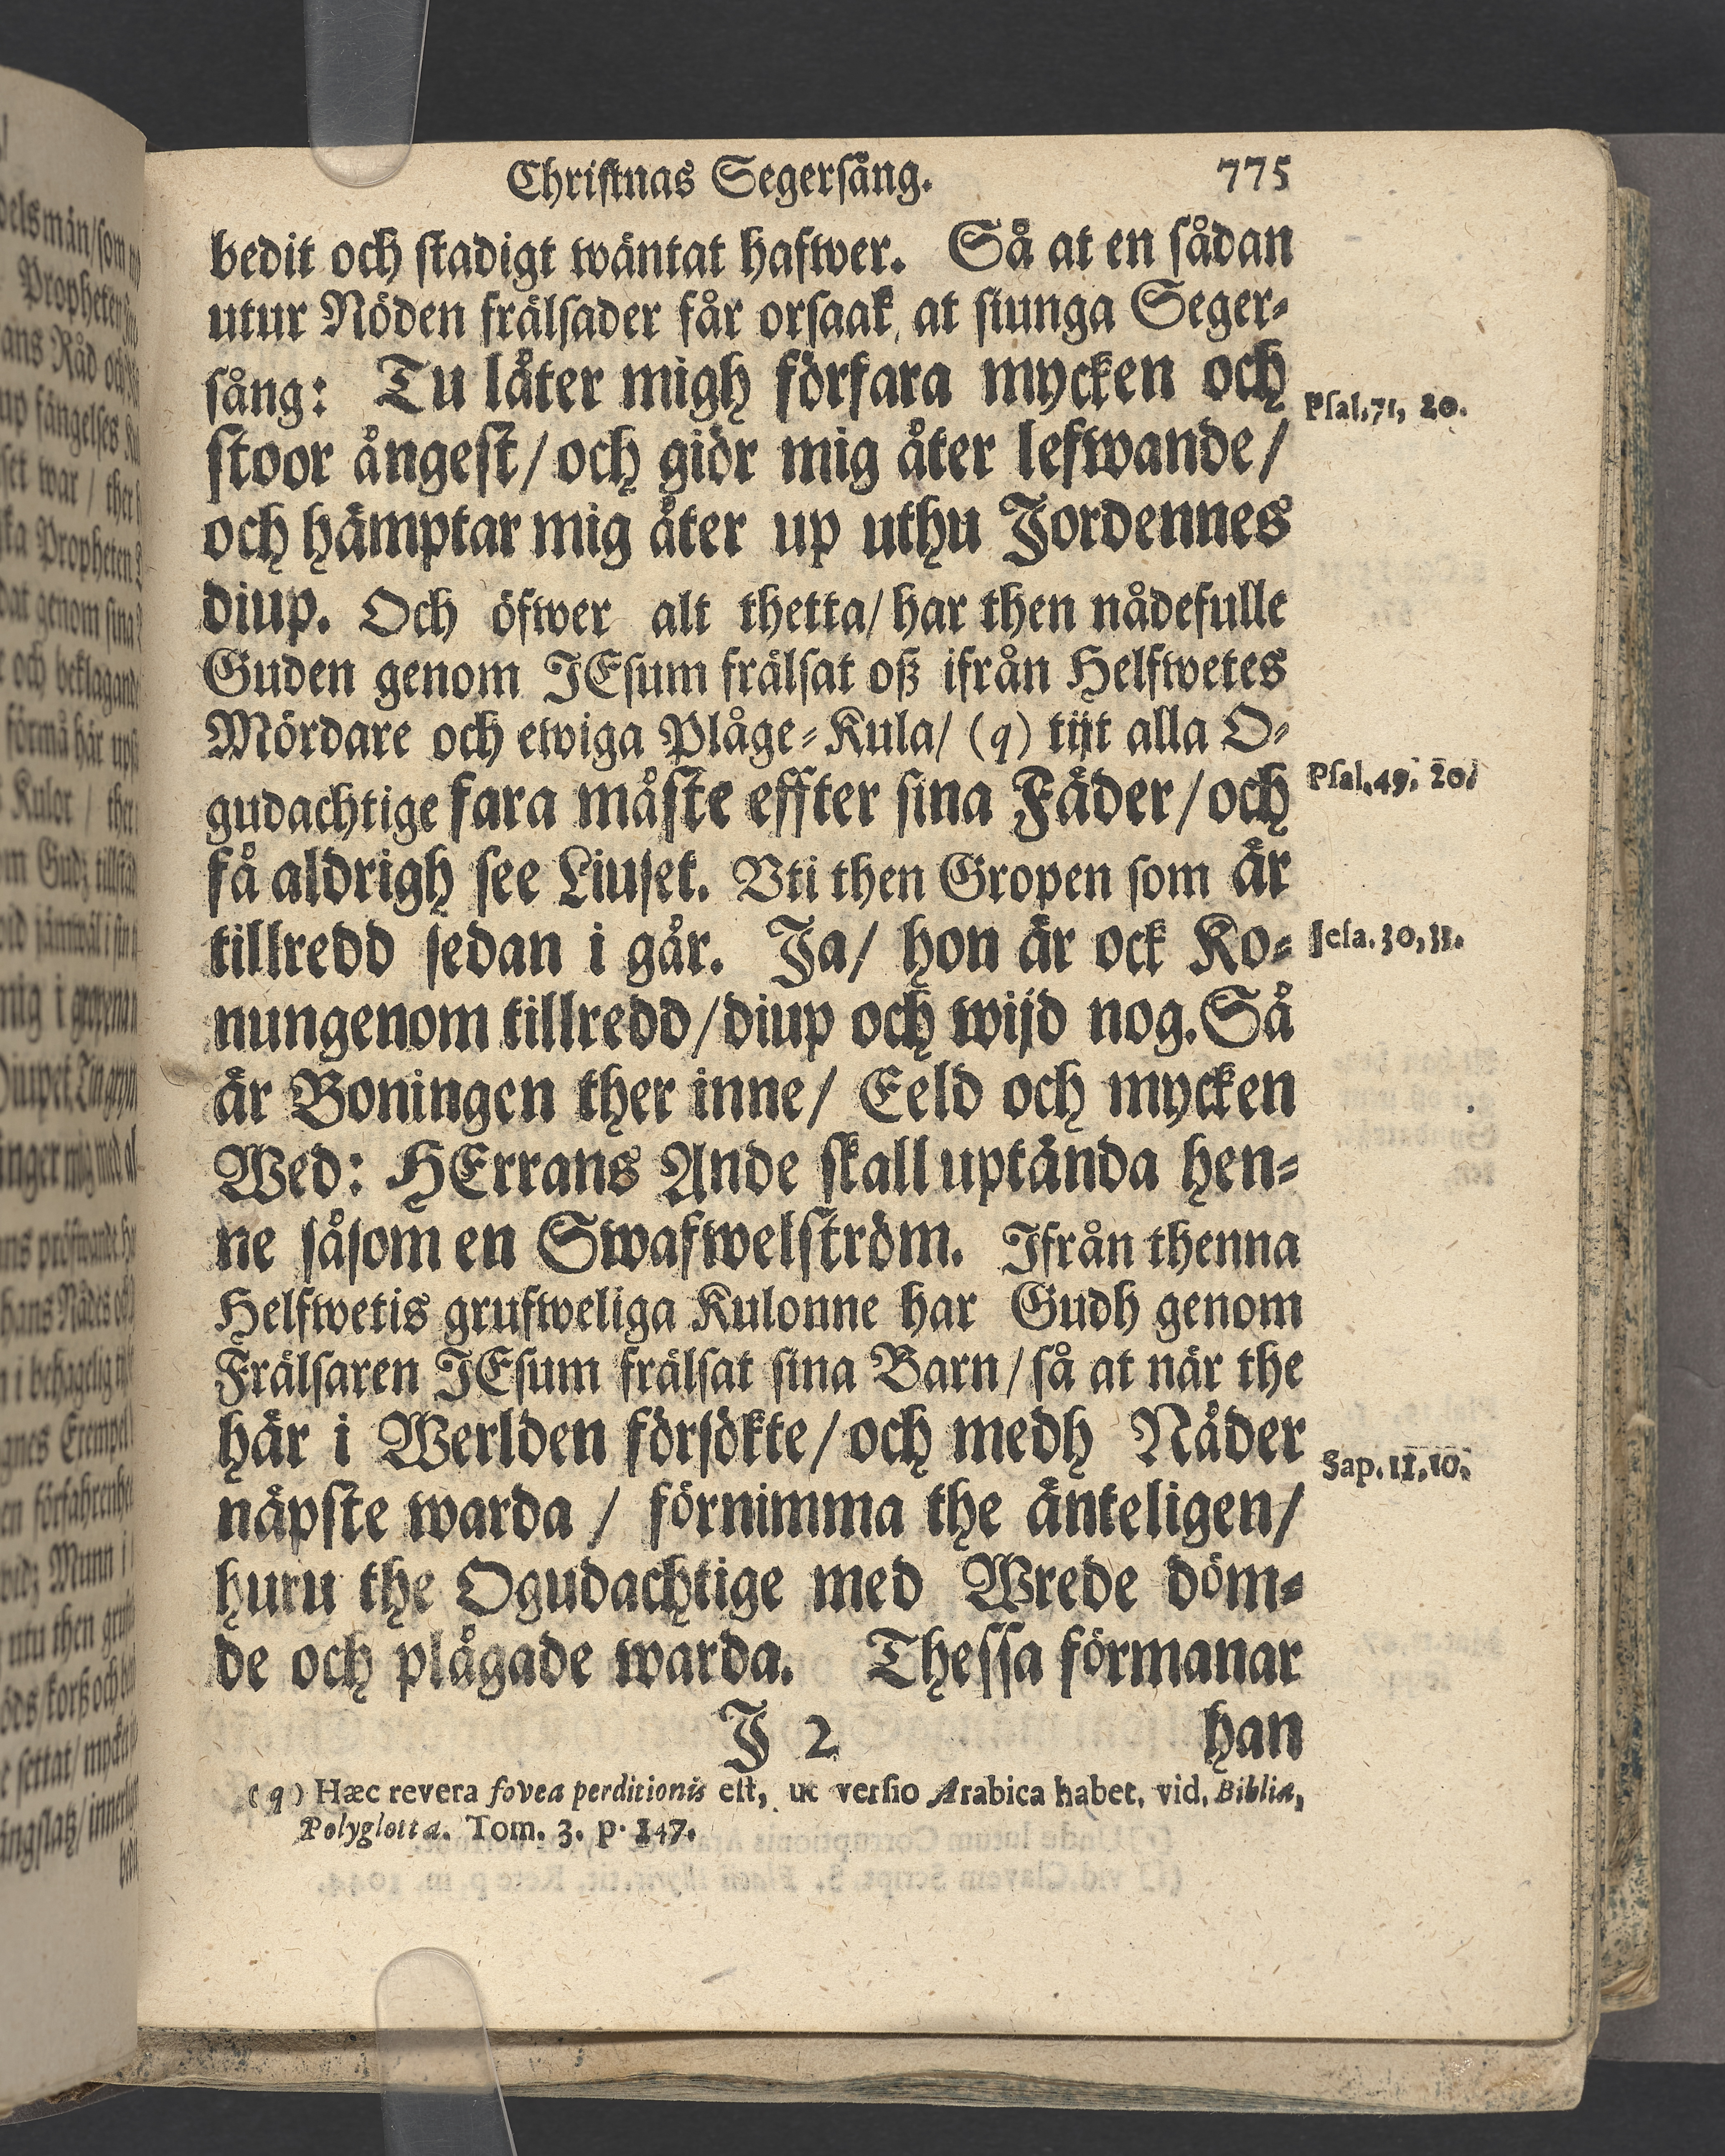 Christnas Segersång. 775
bedit och stadigt wäntat hafwer. Så at en sådan
utur Nöden frälsader får orsaak at siunga Seger-
sång: Tu låter migh förfara mycken och
Psal. 71, 20.
stoor ångest/ och giör mig åter lefwande/
och hämptar mig åter up uthu Jordennes
diup. Och öfwer alt thetta/ har then nådefulle
Guden genom JEsum frälsat oß ifrån Helfwetes
Mördare och ewiga Plåge-Kula/ (q) tijt alla O-
Psal. 49, 20.
gudachtige fara måste effter sina Fäder/ och
få aldrigh see Liuset. Vti then Gropen som är
tillredd sedan i går. Ja/ hon är ock Ko-
Jesa. 30, 33.
nungenom tillredd/ diup och wijd nog. Så
är Boningen ther inne/ Eeld och mycken
Wed: HErrans Ande skall uptända hen-
ne såsom en Swafwelström. Ifrån thenna
Helfwetis grufweliga Kulonne har Gudh genom
Frälsaren JEsum frälsat sina Barn/ så at när the
här i Werlden försökte/ och medh Nåder
Sap. 11, 10.
näpste warda / förnimma the änteligen/
huru the Ogudachtige med Wrede döm-
de och plågade warda. Thessa förmanar
J 2 han
(q) Hæc revera fovea perditionis est, ut versio Arabica habet, vid. Biblia,
Polyglotta. Tom. 3. p. 147.